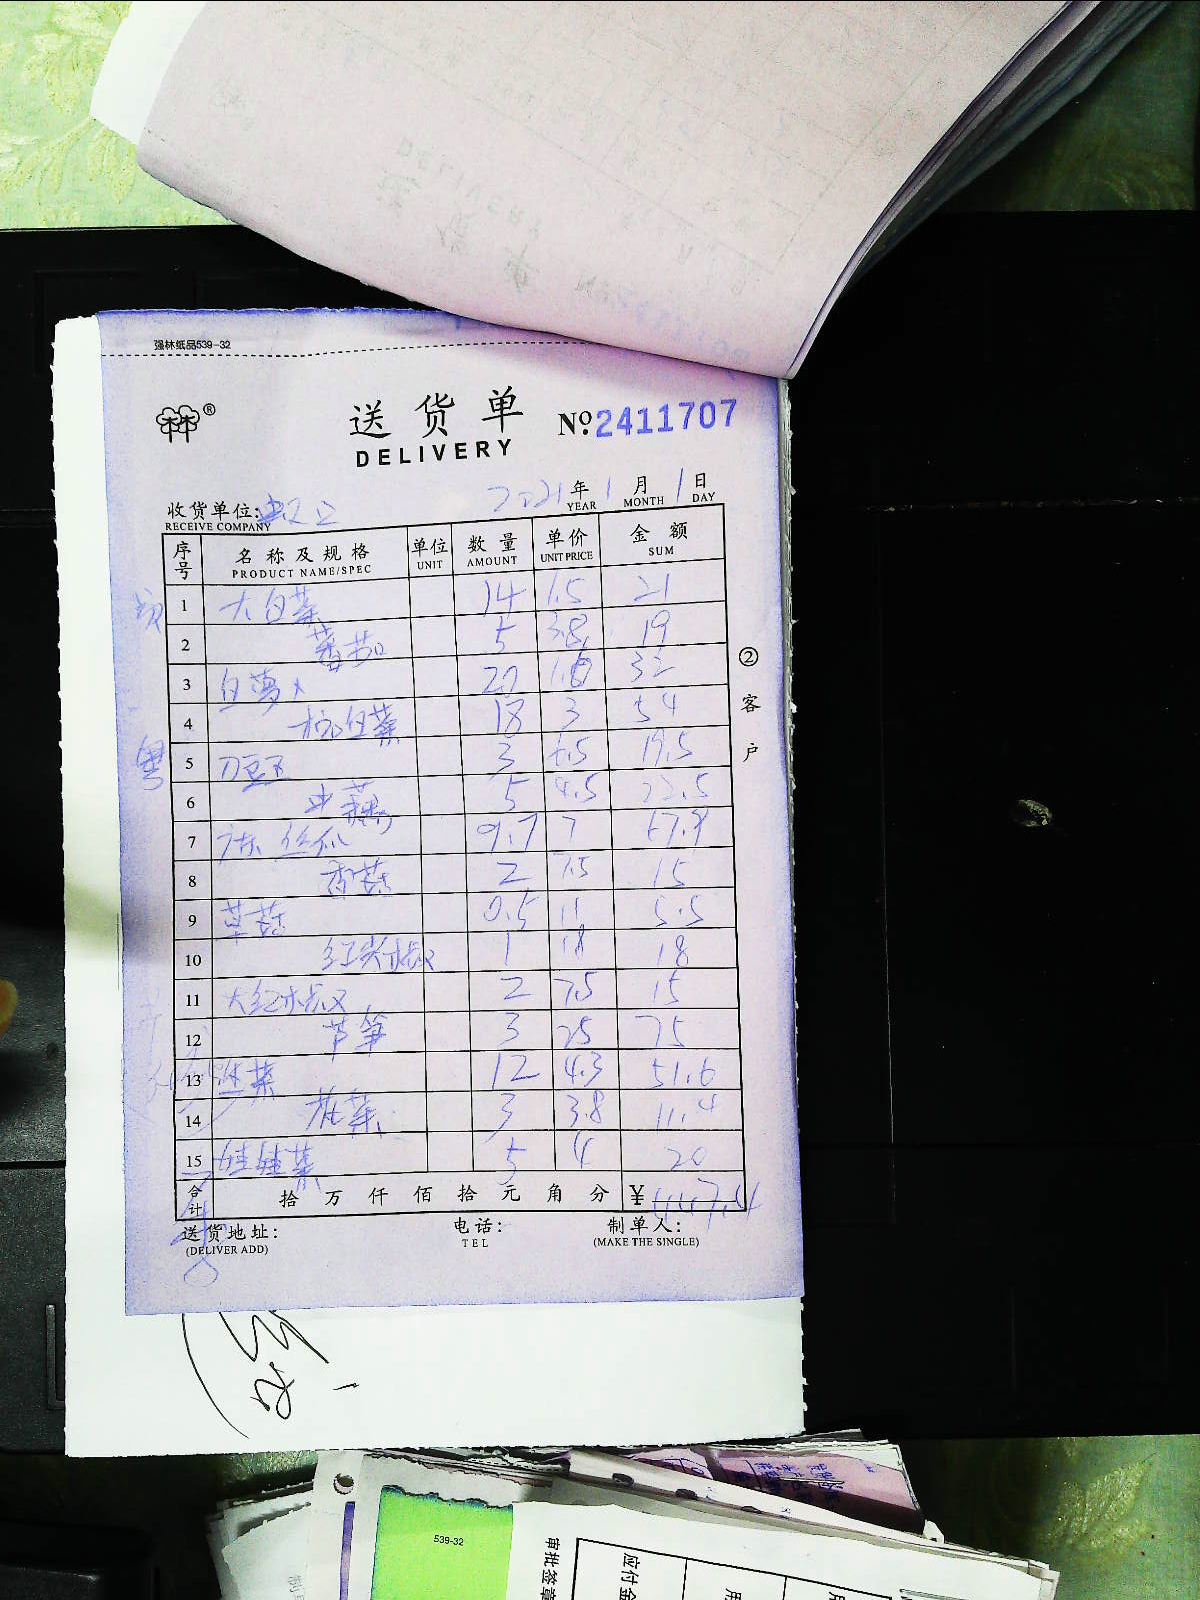 强林纸品539-32
林®
送货单
DELIVERY
№:2411707
2021年1月1日
YEAR MONTH DAY
收货单位:
RECEIVE COMPANY
序号 名称及规格 单位 数量 单价 金额
PRODUCT NAME/SPEC UNIT AMOUNT UNIT PRICE SUM
1 大白菜 14 1.5 21
2 蕃茄 5 3.8 19
3 白萝卜 20 1.6 32
4 杭白菜 18 3 54
5 刀豆 3 6.5 19.5
6 5 4.5 22.5
7 广东丝瓜 9.7 7 67.9
8 香菇 2 7.5 15
9 草菇 0.5 11 5.5
10 红尖椒 1 18 18
11 大红椒 2 7.5 15
12 芦笋 3 25 75
13 菜 12 4.3 51.6
14 花菜 3 3.8 11.4
15 娃娃菜 5 4 20
合计 拾万仟佰拾元角分 ¥447.4
②客户
送货地址: 电话: 制单人:
(DELIVER ADD) TEL (MAKE THE SINGLE)
539-32
审批签章
应付金